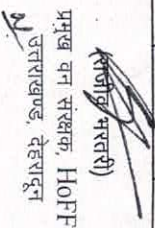 (राजीव भरतरी)
प्रमुख वन संरक्षक, HoFF
उत्तराखण्ड, देहरादून